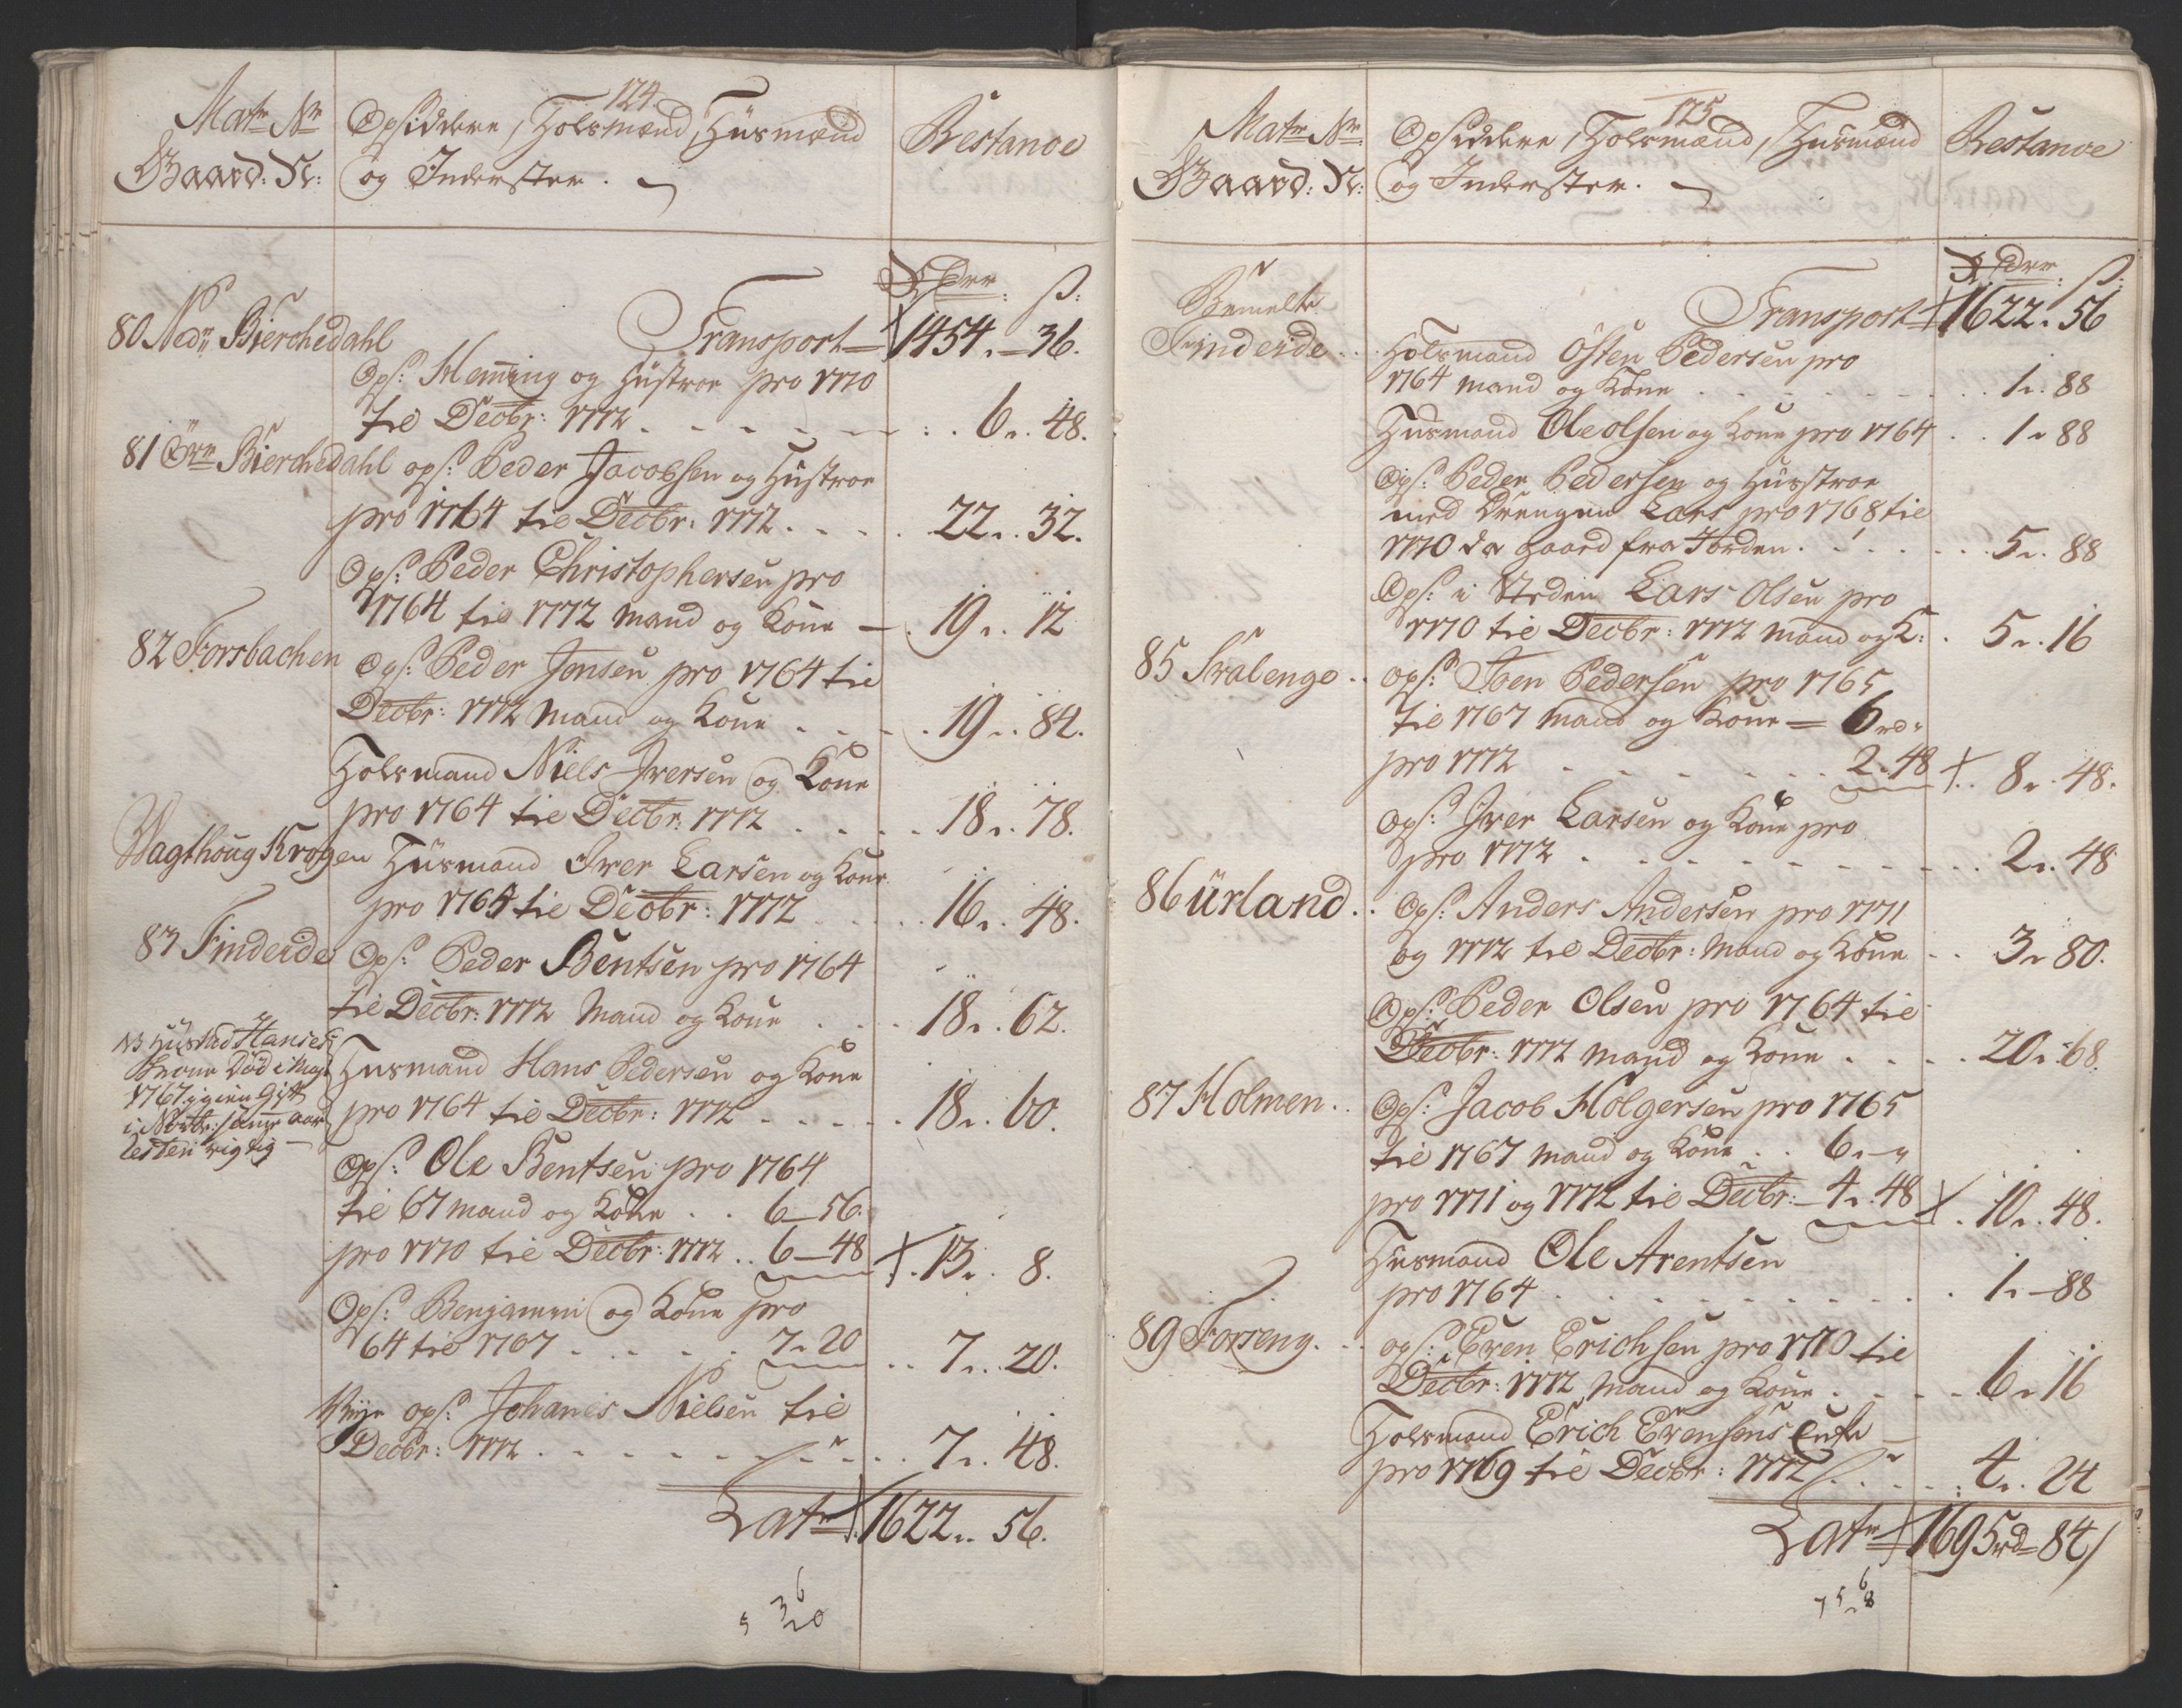 124.
Matr Nr
Gaard: N:
Opsiddere, Holsmænd, Huusmænd
og Inderster.
Restance
Rdr ß:
Transport 1454 „ 36.
80 Nedr Bierchedahl
Ops: Hemming og Hustroe pro 1770
til Decbr: 1772 . . . 6 „ 48.
81 Övr Bierchedahl ops: Peder Jacobsen og Hustroe
pro 1764 til Decbr: 1772 . . . 22 „ 32.
Ops: Peder Christophersen pro
1764 til 1772 Mand og Kone 19 „ 12
82 Forsbachen
Ops: Peder Jonsen pro 1764 til
Decbr: 1772 Mand og Kone . . . 19 „ 84.
Holsmand Niels Iversen og Kone
pro 1764 til Decbr: 1772 . . . 18 „ 78.
Wagthoug Krogen Huusmand Iver Larsen og Kone
pro 1765 til Decbr: 1772 . . . 16 „ 48.
83 Findeide
Ops: Peder Bentsen pro 1764
til Decbr: 1772 Mand og Kone . . . 18 „ 62.
NB Husmd Hanses
Kone Död i Maji
1767 igien Gift
i Novbr: samme aar
Resten rigtig
Husmand Hans Pedersen og Kone
pro 1764 til Decbr: 1772 . . . 18 „ 60.
Ops: Ole Bentsen pro 1764
til 67 Mand og Kone . . 6 – 56.
pro 1770 til Decbr: 1772 . . 6 – 48 13 „ 8.
Ops: Benjamin og Kone pro
64 til 1767 . . . 7 „ 20 . . 7 „ 20.
Nye ops: Johanes Nielsen til
Decbr: 1772 . . . 7 „ 48.
Latr 1622 „ 56.
125
Matr Nr:
Gaard: N:
Opsiddere, Holsmænd, Husmænd
og Inderster.
Restance
Rdr ß:
Transport 1622 „ 56
Bemelte
Findeide . .
Holsmand Östen Pedersen pro
1764 Mand og Kone . . . 1 „ 88
Husmand Ole Olsen og Kone pro 1764 . . 1 „ 88
Ops: Peder Pedersen og Hustroe
med Drengen Lars pro 1768 til
1770 da Gaard fra Jorden . . . 5 „ 88
Ops: i Steden Lars Olsen pro
1770 til Decbr: 1772 Mand og K: . 5 „ 16
85 Stralenge . .
ops: Joen Pedersen pro 1765
til 1767 Mand og Kone = 6 rd „
pro 1772 . . . 2 „ 48 8 „ 48.
Ops: Iver Larsen og Kone pro
pro 1772 . . . 2 „ 48
86 Ürland . .
Ops: Anders Andersen pro 1771
og 1772 til Decbr: Mand og Kone . . 3 „ 80.
Ops: Peder Olsen pro 1764 til
Decbr: 1772 Mand og Kone . . . 20 „ 68.
87 Holmen . .
Ops: Jacob Holgersen pro 1765
til 1767 Mand og Kone . . 6 „ – „
pro 1771 og 1772 til Decbr: – 4 „ 48 10 „ 48.
Husmand Ole Arentsen
pro 1764 . . . 1 „ – 88
89 Forseng . . .
ops: Even Erichsen pro 1770 til
Decbr: 1772 Mand og Kone . . . 6 „ 16
Holsmand Erich Evensens Enke
pro 1769 til Decbr: 1772 . . . 4 „ 24
Latr 1695 rd – 84 ß